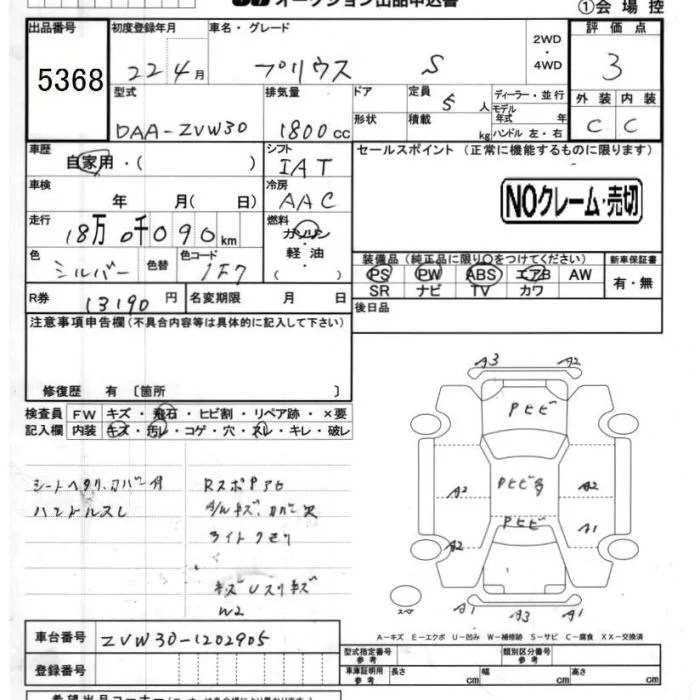 オークション出品申込書
①会場控
出品番号
5368
初度登録年月
22 4月
車名・グレード
プリウス S
2WD
・
4WD
評価点
3
型式
DAA-ZVW30
排気量
1800cc
ドア
定員
5人
ディーラー・並行
形状
積載
kg
モデル年式 年
ハンドル 左・右
外装 内装
C C
車歴
自家用・( )
シフト
IAT
セールスポイント (正常に機能するものに限ります)
車検
年 月( 日)
冷房
AAC
NOクレーム・売切
走行
18万0千090km
燃料
ガソリン
・
軽・油
( )
色
シルバー
色替
色コード
1F7
装備品(純正品に限り○をつけてください)
新車保証書
PS PW ABS エアB AW
SR ナビ TV カワ
有・無
R券
13190円
名変期限 月 日
後日品
注意事項申告欄(不具合内容等は具体的に記入して下さい)
修復歴 有 〔箇所 〕
検査員
記入欄
FW キズ・飛石・ヒビ割・リペア跡・×要
内装 キズ・汚レ・コゲ・穴・スレ・キレ・破レ
シートヘタリ、カバー付
ハンドルスレ
ライトクモリ
W2
A3 A2
Pヒビ
A2 A2
Pヒビ
A2 A1
スペア
A1 A3 A1
A-キズ E-エクボ U-凹み W-補修跡 S-サビ C-腐食 XX-交換済
車台番号
ZVW30-1202905
登録番号
型式指定番号
参考
類別区分番号
参考
車庫証明用
参考
長さ cm 幅 cm 高さ cm